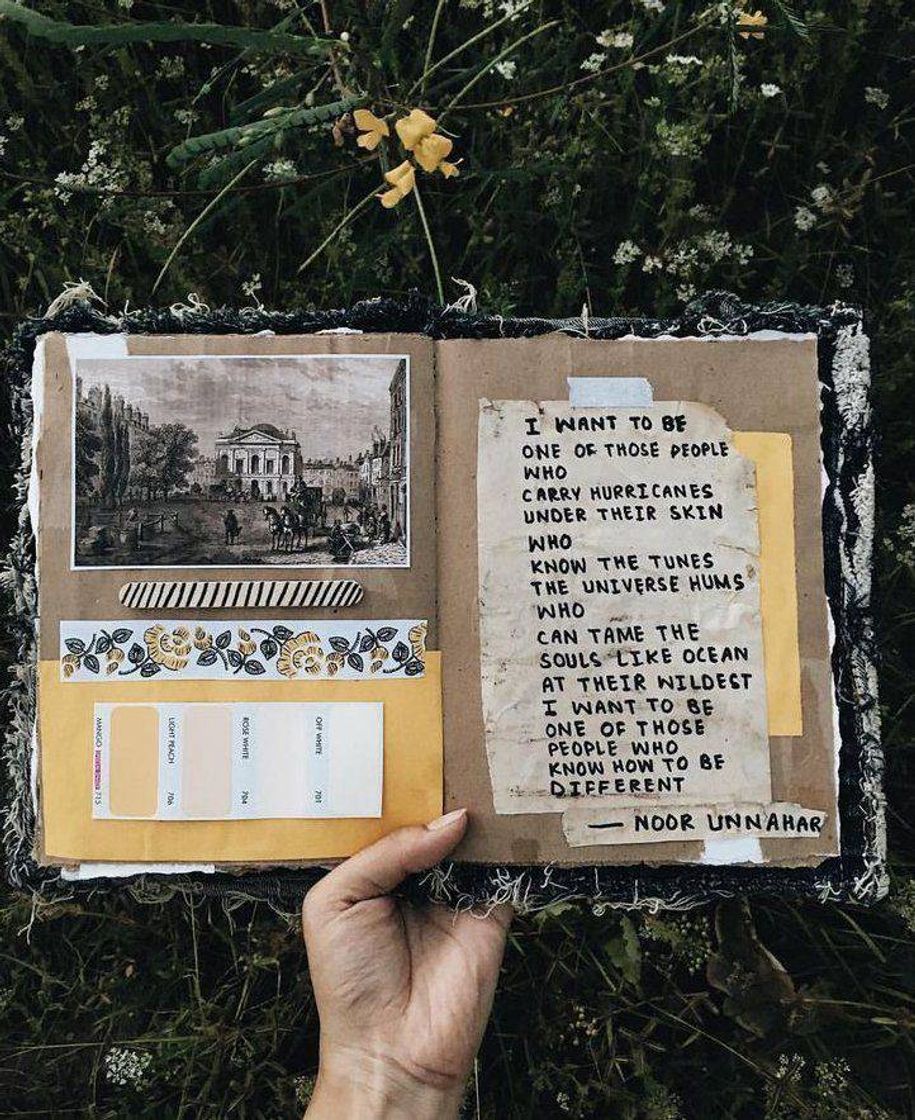 I WANT TO BE
ONE OF THOSE PEOPLE
WHO
CARRY HURRICANES
UNDER THEIR SKIN
WHO
KNOW THE TUNES
THE UNIVERSE HUMS
WHO
CAN TAME THE
SOULS LIKE OCEAN
AT THEIR WILDEST
I WANT TO BE
ONE OF THOSE
PEOPLE WHO
KNOW HOW TO BE
DIFFERENT
— NOOR UNNAHAR
MANGO 715
LIGHT PEACH 706
ROSE WHITE 704
OFF WHITE 701